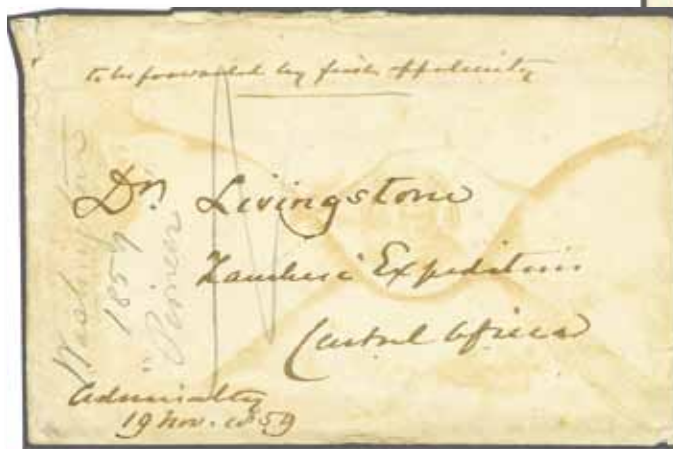 to be forwarded by first opportunity
Dr. Livingstone
Zambesi Expedition
Central Africa
Admiralty
19 Nov. 1859
Washington
1859
"Pioneer"